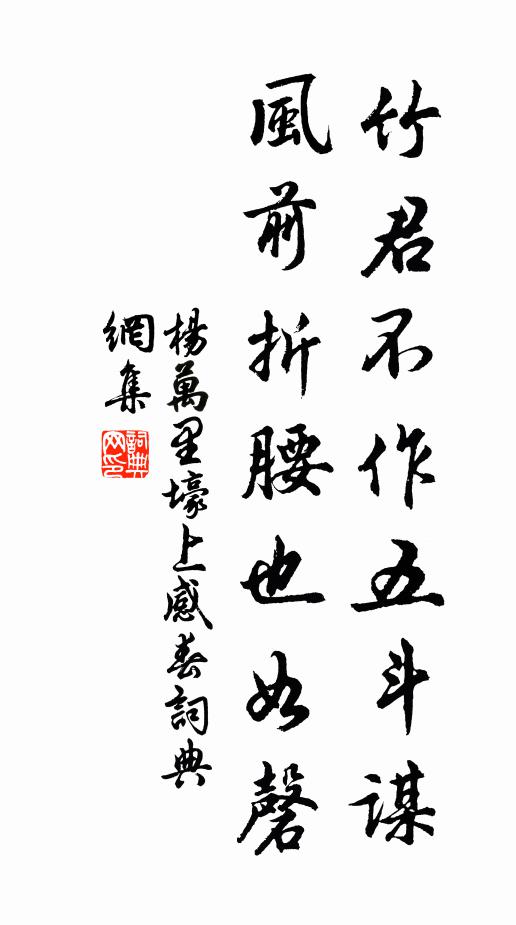 竹君不作五斗謀
風前折腰也如磬
楊萬里壕上感春詞典
網集
詞典網印